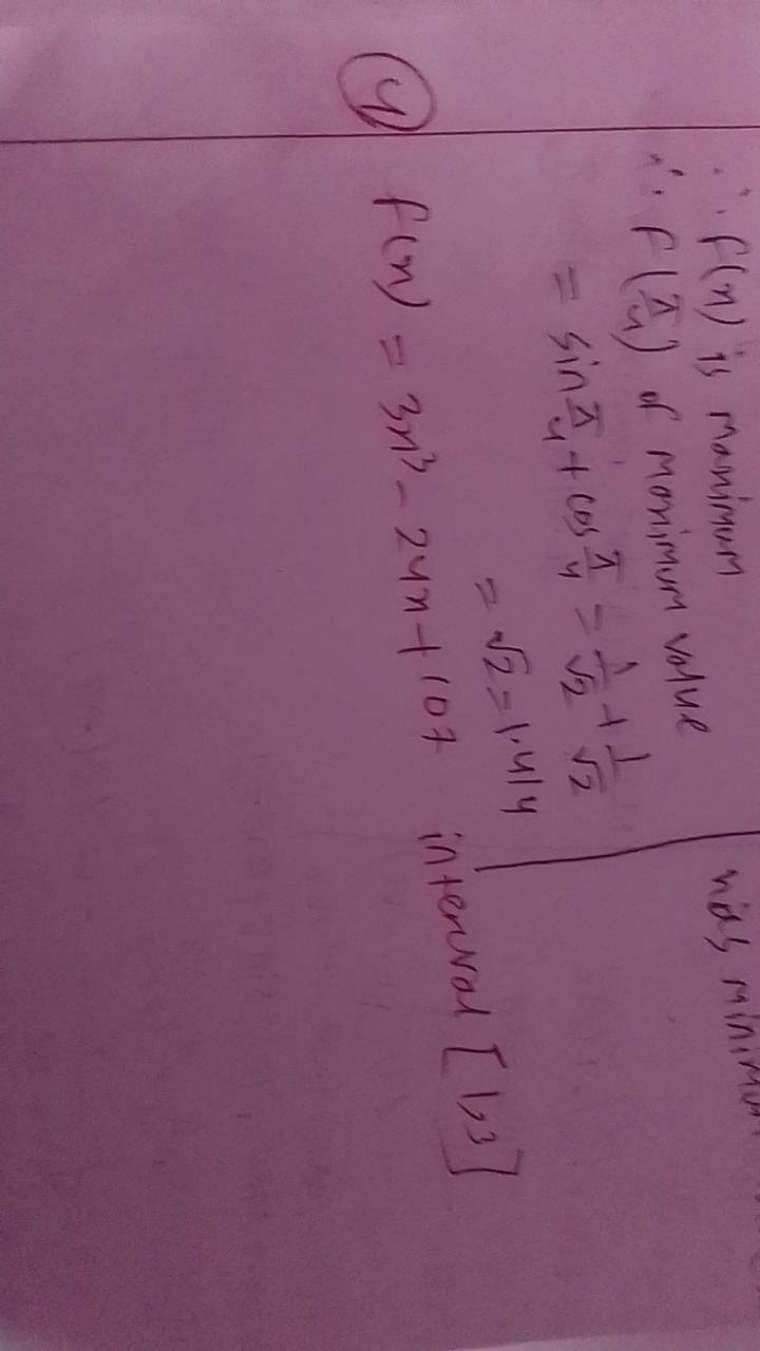 ∴ f(x) is maximum
∴ f(π/4) of maximum value
= sin π/4 + cos π/4 = 1/√2 + 1/√2
= √2 = 1.414
④ f(x) = 3x² - 24x + 107 interval [1,3]